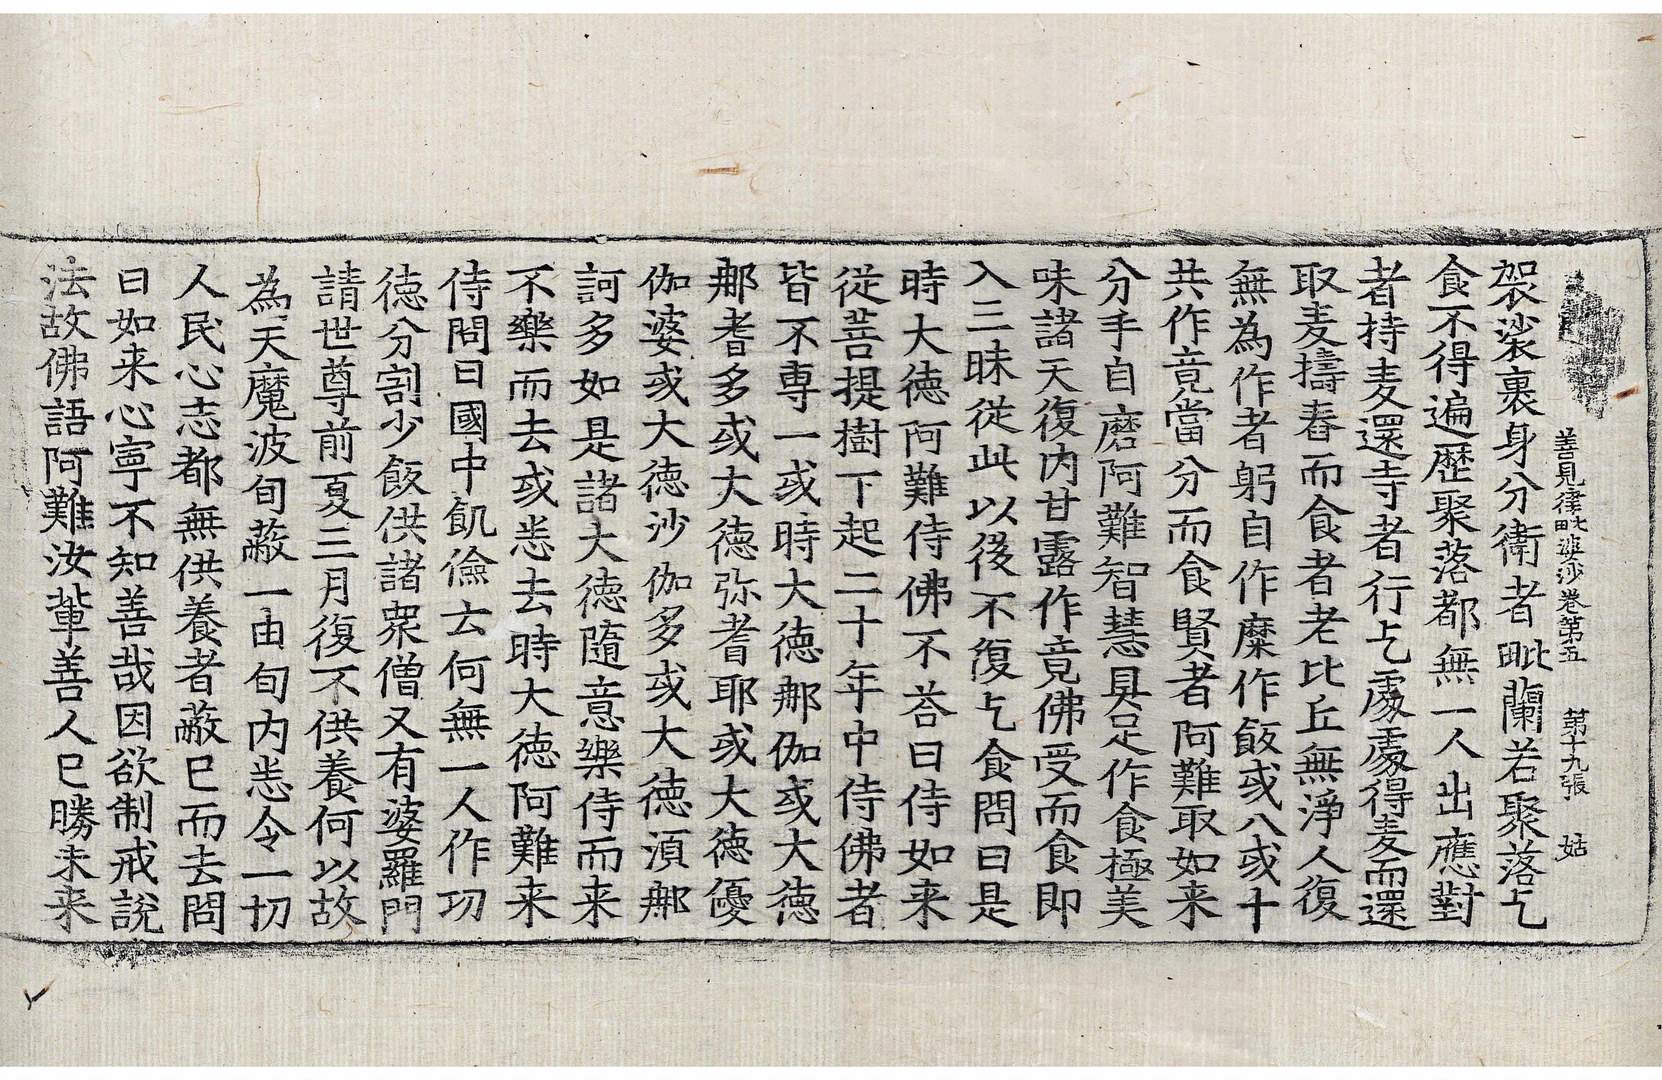 善見律毗婆沙卷第五　第十九張　姑
袈裟裹身分衛者毗蘭若聚落乞
食不得遍歷聚落都無一人出應對
者持麦還寺者行乞處處得麦而還
取麦擣舂而食者老比丘無淨人復
無為作者躬自作糜作飯或八或十
共作竟當分而食賢者阿難取如来
分手自磨阿難智慧具足作食極美
味諸天復內甘露作竟佛受而食即
入三昧從此以後不復乞食問曰是
時大德阿難侍佛不荅曰侍如来
從菩提樹下起二十年中侍佛者
皆不専一或時大德那伽或大德
那耆多或大德弥耆耶或大德優
伽婆或大德沙伽多或大德湏那
訶多如是諸大德隨意樂侍而来
不樂而去或恙去時大德阿難来
侍問曰國中飢儉云何無一人作㓛
德分割少飯供諸衆僧又有婆羅門
請世尊前夏三月復不供養何以故
為天魔波旬蔽一由旬內恙令一切
人民心志都無供養者蔽已而去問
曰如来心寧不知善哉因欲制戒說
法故佛語阿難汝輩善人已勝未来